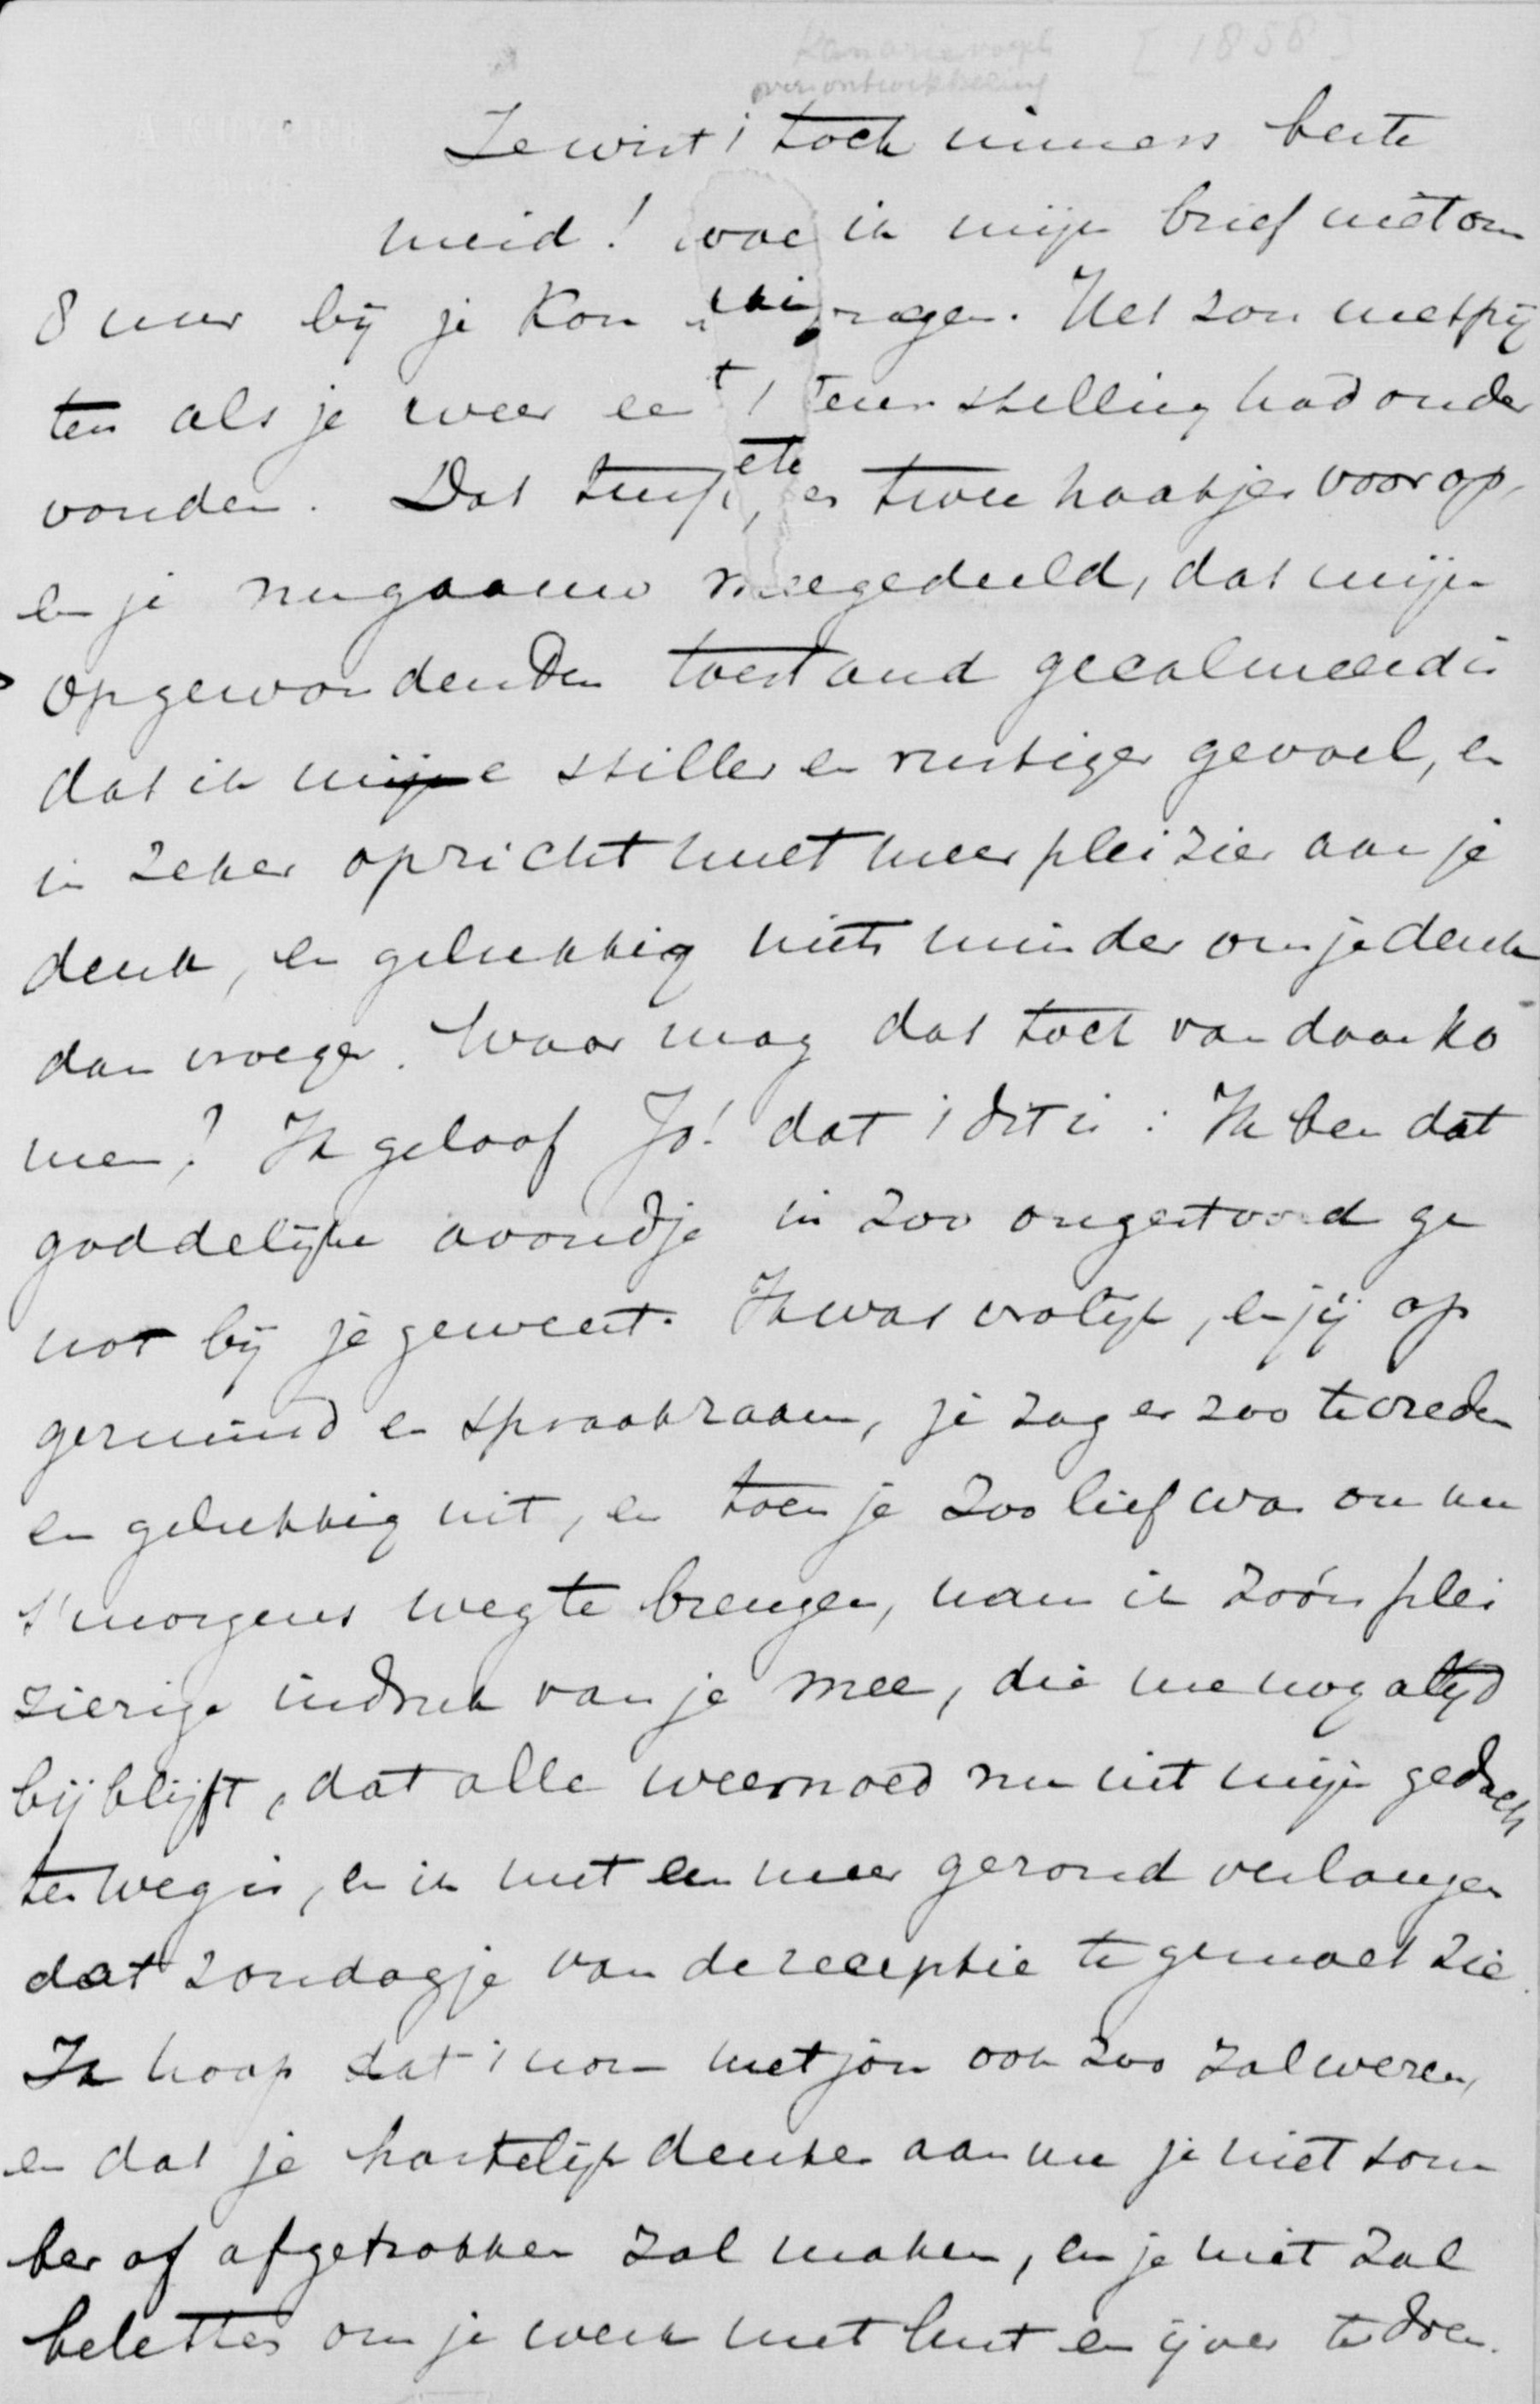 Kanarievogels [1858]
over ontwikkeling
Je wist i toch immers beste
meid! wae ik mijn brief niet om
8 uur bij je kon ragen. Het zou me spij
ten als je weer een teurstelling had onder
vonden. Dat ete er twee haakjes voor op,
en je nu gaauw meegedeeld, dat mijn
opgewondenden toestand gecalmeerd is
dat ik mije stiller en rustiger gevoel, en
in zeker opzicht met meer pleizier aan je
denk, en gelukkig niets minder om je denk
dan vroeger. Waar mag dat toch van daan ko
men? Ik geloof Jo! dat i dit is: Ik ben dat
goddelijke avondje in zoo ongestoord ge
not bij je geweest. Ik was vrolijk, en jij op
geruimd en spraakzaam, je zag er zoo tevreden
en gelukkig uit, en toen je zoo lief was om me
s'morgens weg te brengen, nam ik zoo'n plei
zierige indruk van je mee, die me nog altijd
bij blijft, dat alle weemoed nu uit mijn gedach
ten weg is, en ik met een meer gezond verlangen
dat zondagje van de receptie te gemoet zie.
Ik hoop dat i nou met jou ook zoo zal wezen,
en dat je hartelijk denken aan me je niet som
ber of afgetrokken zal maken, en je niet zal
beletten om je werk met lust en ijver te doen.